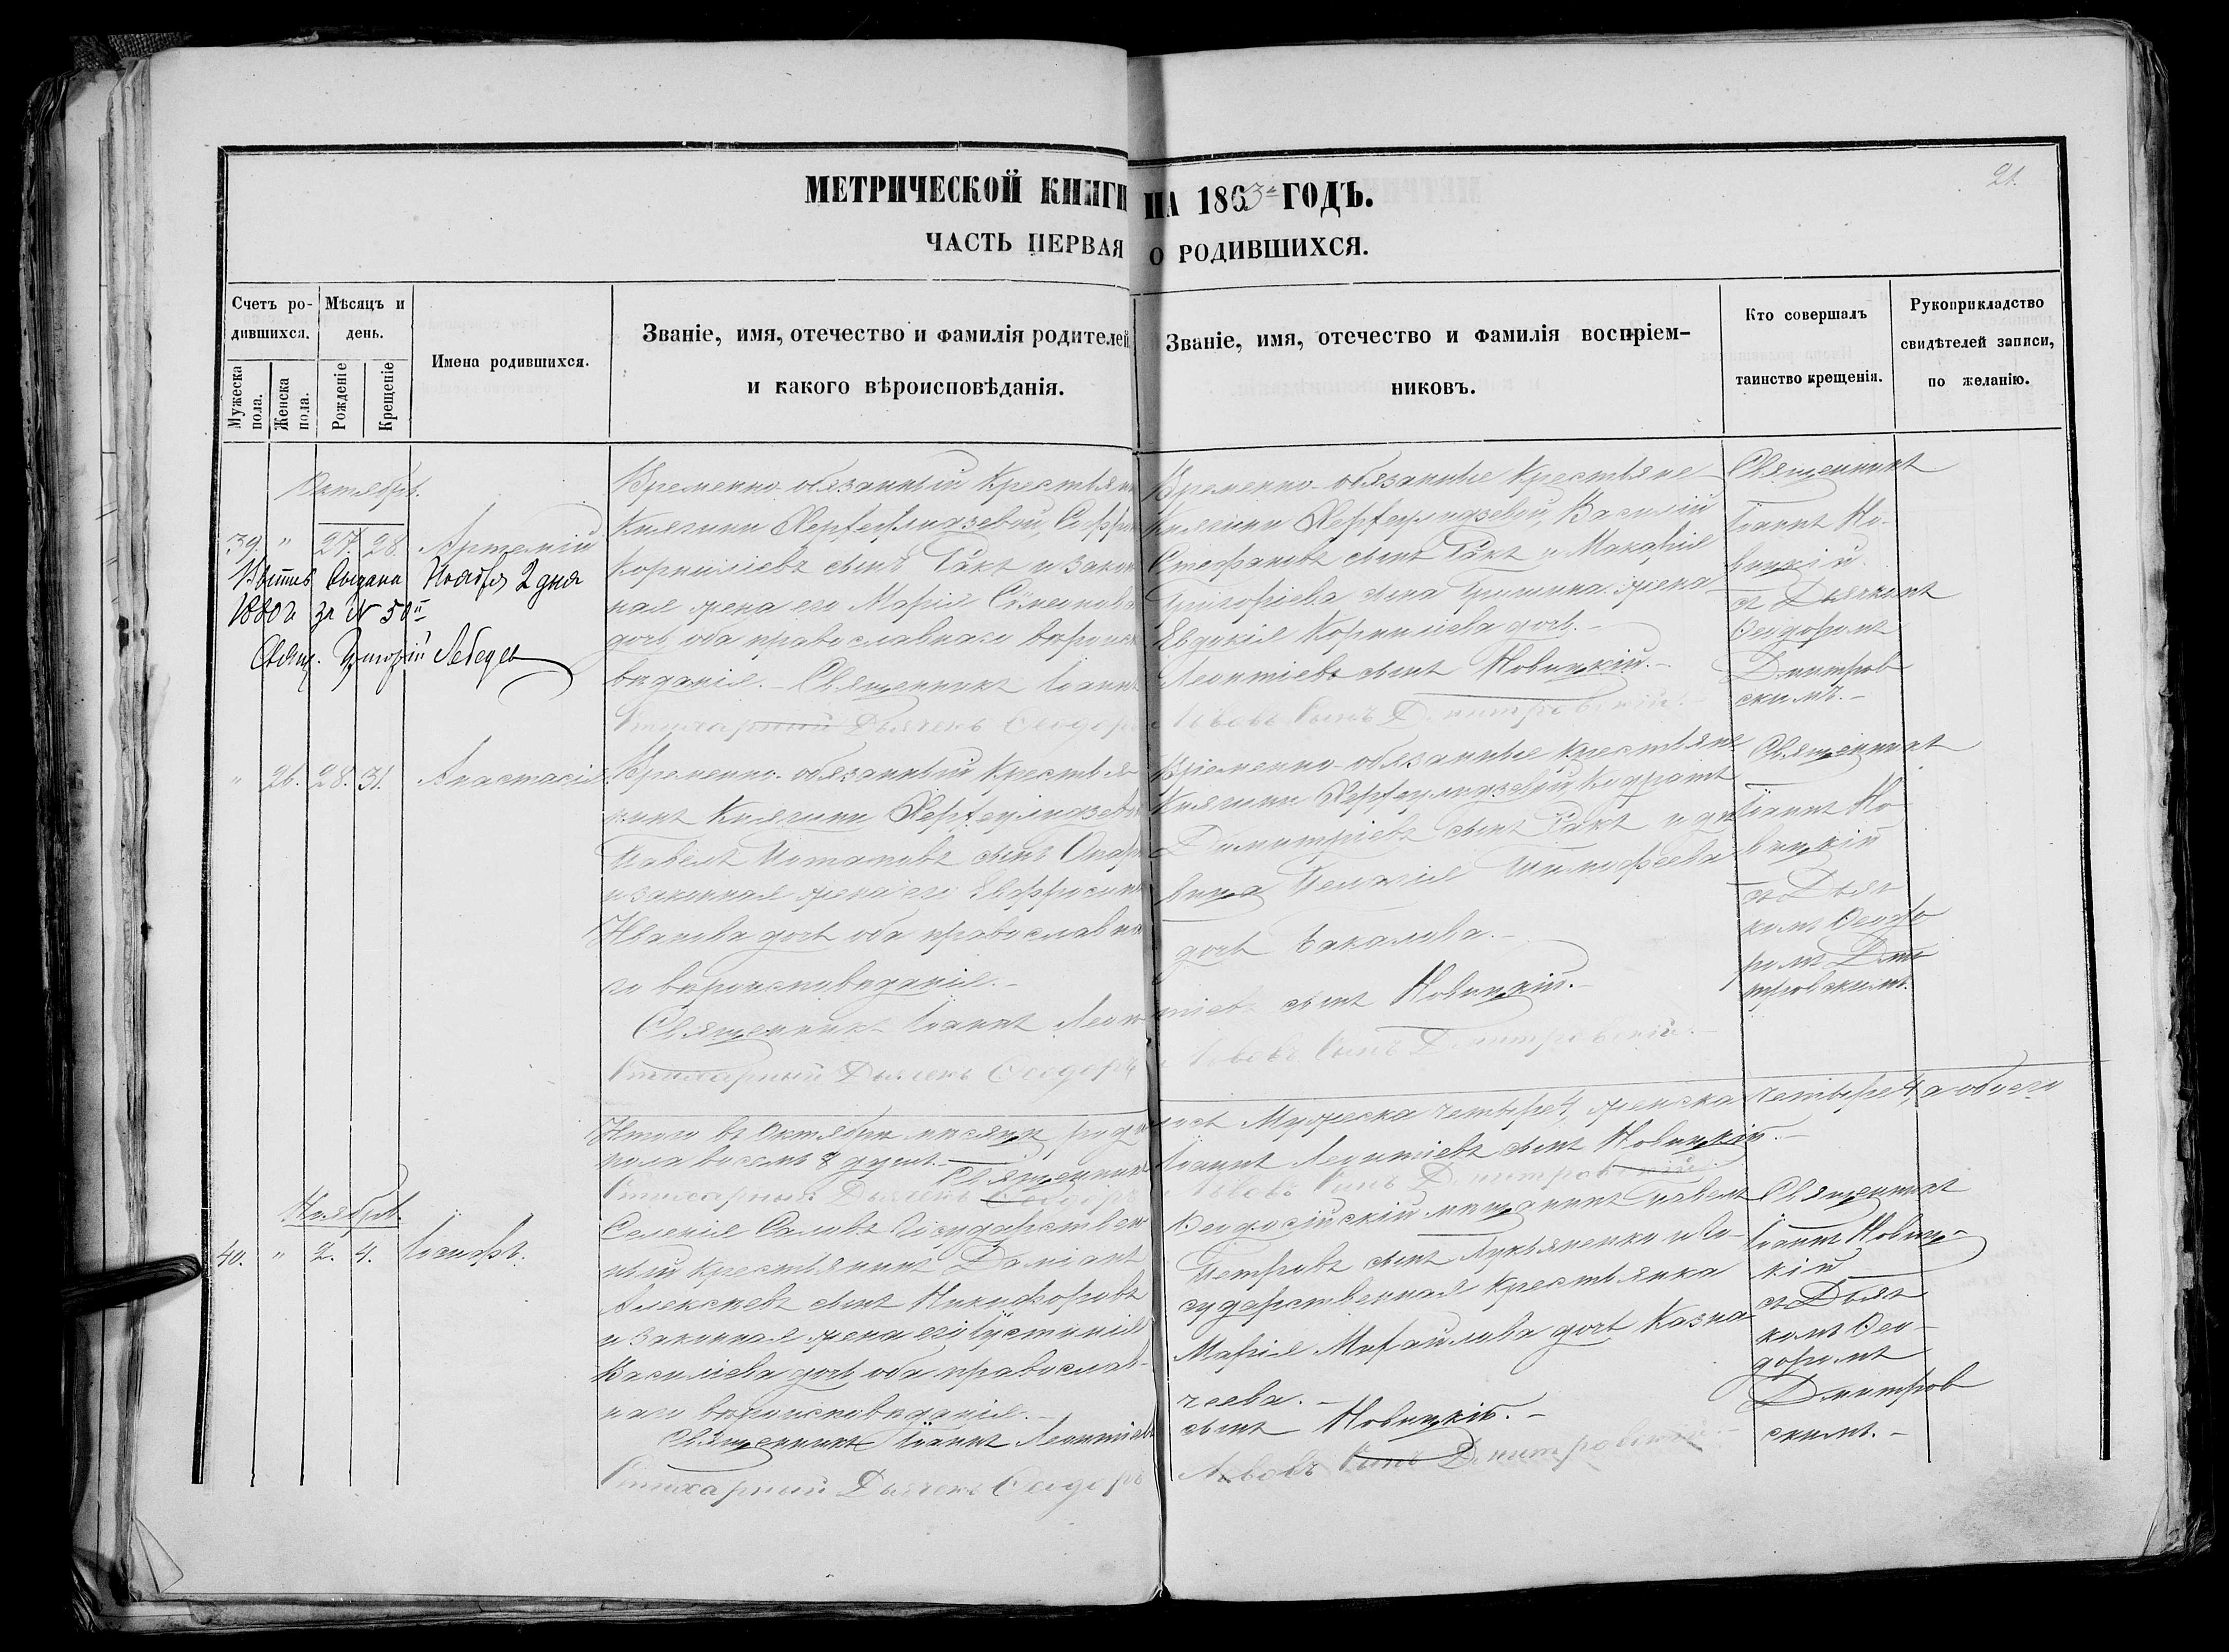 МЕТРИЧЕСКОЙ КНИГИ НА 1863 ГОДЪ.
21.
ЧАСТЬ ПЕРВАЯ О РОДИВШИХСЯ.
Счетъ ро-
дившихся.
Мужеска пола.
Женска пола.
Мѣсяцъ и
день.
Рожденіе
Крещеніе
Имена родившихся.
Званіе, имя, отечество и фамилія родителей
и какого вѣроисповѣданія.
Званіе, имя, отечество и фамилія воспріем-
никовъ.
Кто совершалъ
таинство крещенія.
Рукоприкладство
свидѣтелей записи,
по желанію.
Октябрь.
39. " 27. 28. Артемій
выдана Ноября 2 дня
1880 г за № 50
Свящ. Лебедев
Временно обязанный Крестьянин
Княгини Херхеулидзевой,
Корниліевъ сынъ Гакъ и закон
ная жена его Марія Симеонова
дочь, оба православнаго вѣроиспо
вѣданія. – Священникъ Іоаннъ
Стихарный Дьячекъ Ѳеодоръ
Временно-обязанные Крестьяне
Княгини Херхеулидзевой, Василій
Стефановъ сынъ Гакъ и
Григоріева сына жена
Евдокія Корниліева дочь. –
Леонтіевъ сынъ Новицкій. –
Львовъ Сынъ Дмитровскій. –
Священникъ
Іоаннъ Но-
вицкій
съ Дьячкомъ
Ѳеодоромъ
Дмитров
скимъ. –
" 26. 28. 31. Анастасія
Временно-обязанный Крестья-
нинъ Княгини Херхеулидзевой
Павелъ сынъ
и законная жена его Евфросинія
Иванова дочь оба православна
го вѣроисповѣданія. –
Священникъ Іоаннъ Леон
Стихарный Дьячекъ Ѳеодоръ
Временно-обязанные крестьяне
Княгини Херхеулидзевой Кодратъ
Димитріевъ сынъ Гакъ и дѣ
вица Пелагія Тимофеева
дочь Бакалова. –
тіевъ сынъ Новицкій. –
Львовъ Сынъ Дмитровскій. –
Священникъ
Іоаннъ Но
вицкій
съ Дьяч
комъ Ѳеодо
ромъ Дми
тровскимъ.
Итого въ Октябрѣ мѣсяцѣ роди
лось Мужеска четыре 4, женска четыре 4, а обоего
пола восемь 8 душъ. – Священникъ
Іоаннъ Леонтіевъ сынъ Новицкій. –
Стихарный Дьячекъ Ѳеодоръ
Львовъ Сынъ Дмитровскій.
Ноябрь.
40. " 2. 4. Іосифъ.
Селенія Салы Государствен
ный крестьянинъ Даміанъ
Алексѣевъ сынъ Никифоровъ
и законная жена его Іустинія
Василіева дочь оба православ-
наго вѣроисповѣданія. –
Священникъ Іоаннъ Леонтіевъ
Стихарный Дьячекъ Ѳеодоръ
Ѳеодосійскій мѣщанинъ Павелъ
Петровъ сынъ Лукьяненко и Го-
сударственная крестьянка
Марія Михайлова дочь Казна
чеева. –
сынъ Новицкій. –
Львовъ Сынъ Дмитровскій –
Священникъ
Іоаннъ Новиц-
кій
съ Дьяч
комъ Ѳео-
доромъ
Дмитров
скимъ. –